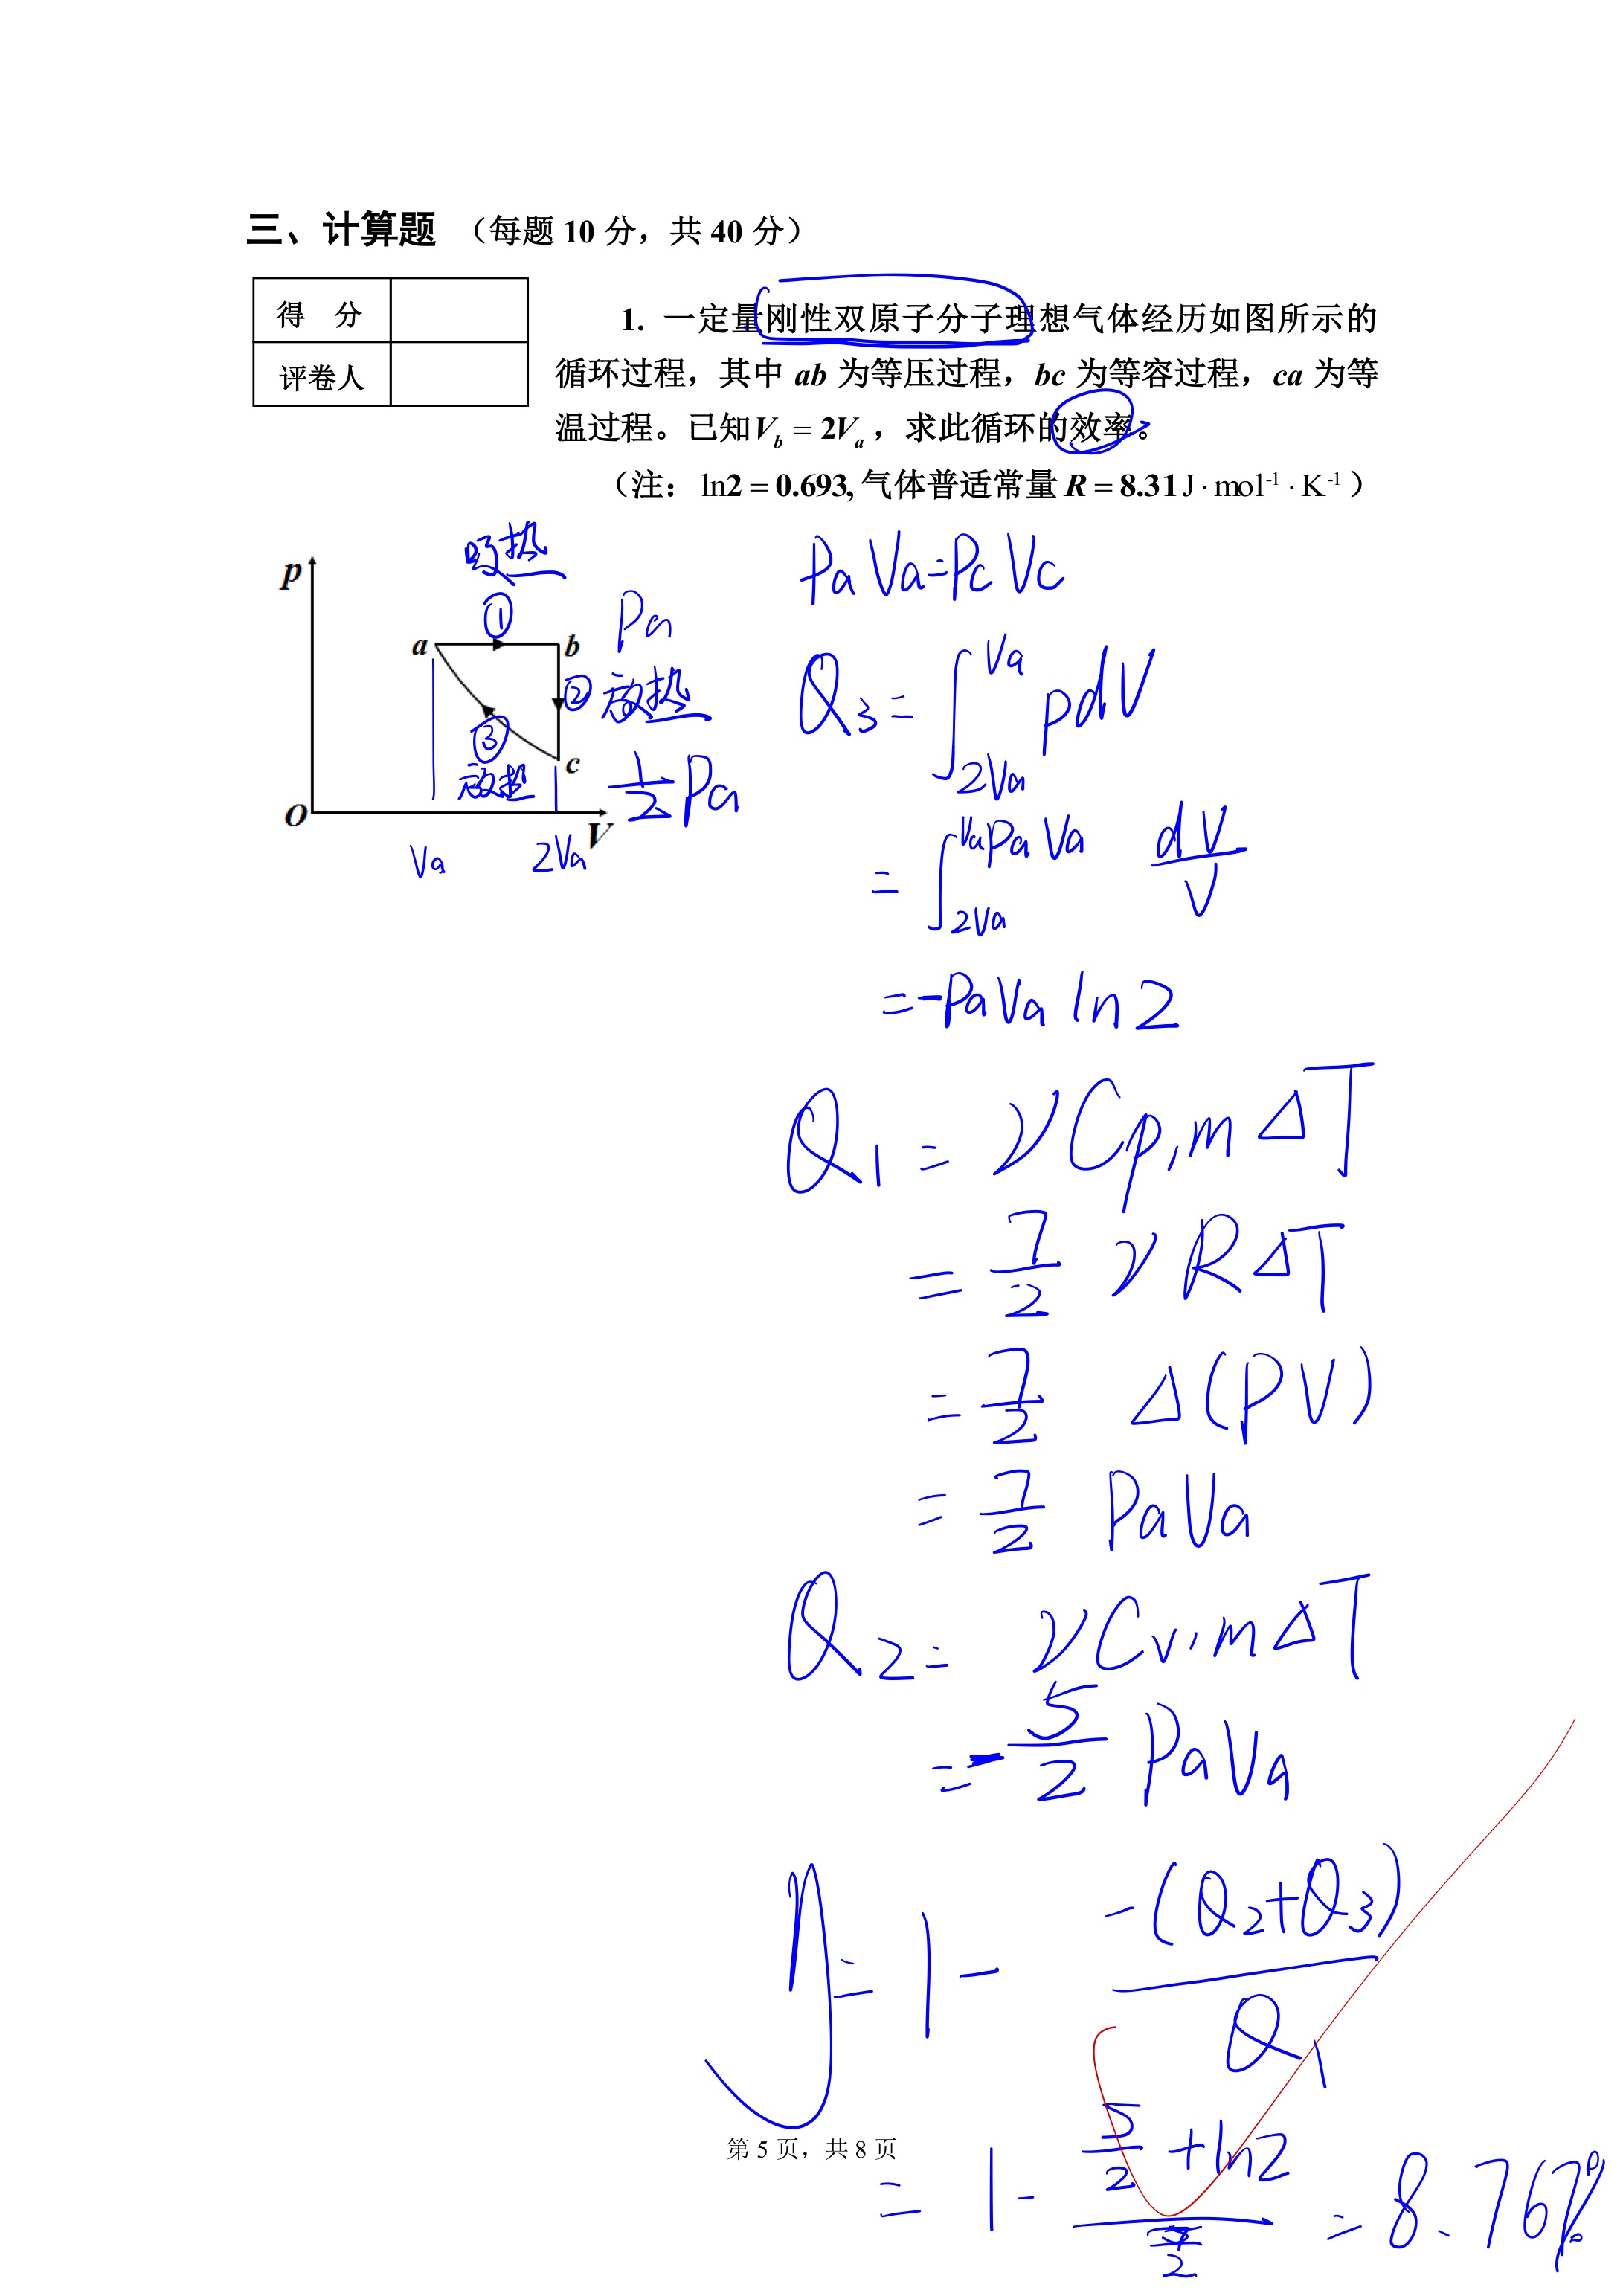 三、计算题 （每题 10 分，共 40 分）
得 分
评卷人
1. 一定量刚性双原子分子理想气体经历如图所示的
循环过程，其中 ab 为等压过程，bc 为等容过程，ca 为等
温过程。已知V_b = 2V_a，求此循环的效率。
（注： ln2 = 0.693, 气体普适常量 R = 8.31 J · mol⁻¹ · K⁻¹ ）
吸热
①
p
a
b
Pa
② 放热
③
放热
c
½ Pa
O
V
Va
2Va
PaVa=PcVc
Q₃ = ∫_{2Va}^{Va} pdV
= ∫_{2Va}^{Va} PaVa dV/V
= -PaVa ln2
Q₁ = νCp,mΔT
= 7/2 νRΔT
= 7/2 Δ(PV)
= 7/2 PaVa
Q₂ = νCv,mΔT
= -5/2 PaVa
η = 1 - -(Q₂+Q₃)/Q₁
= 1 - (5/2 + ln2)/(7/2) = 8.76%
第 5 页，共 8 页